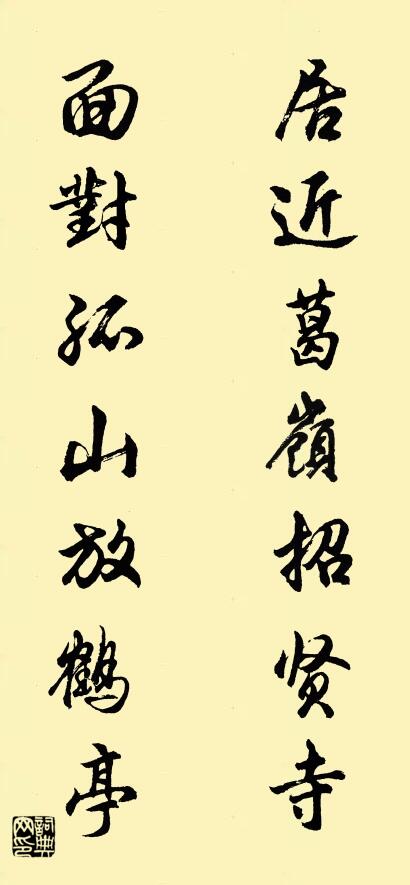 居近葛嶺招贤寺
面對孤山放鶴亭
詞典网印